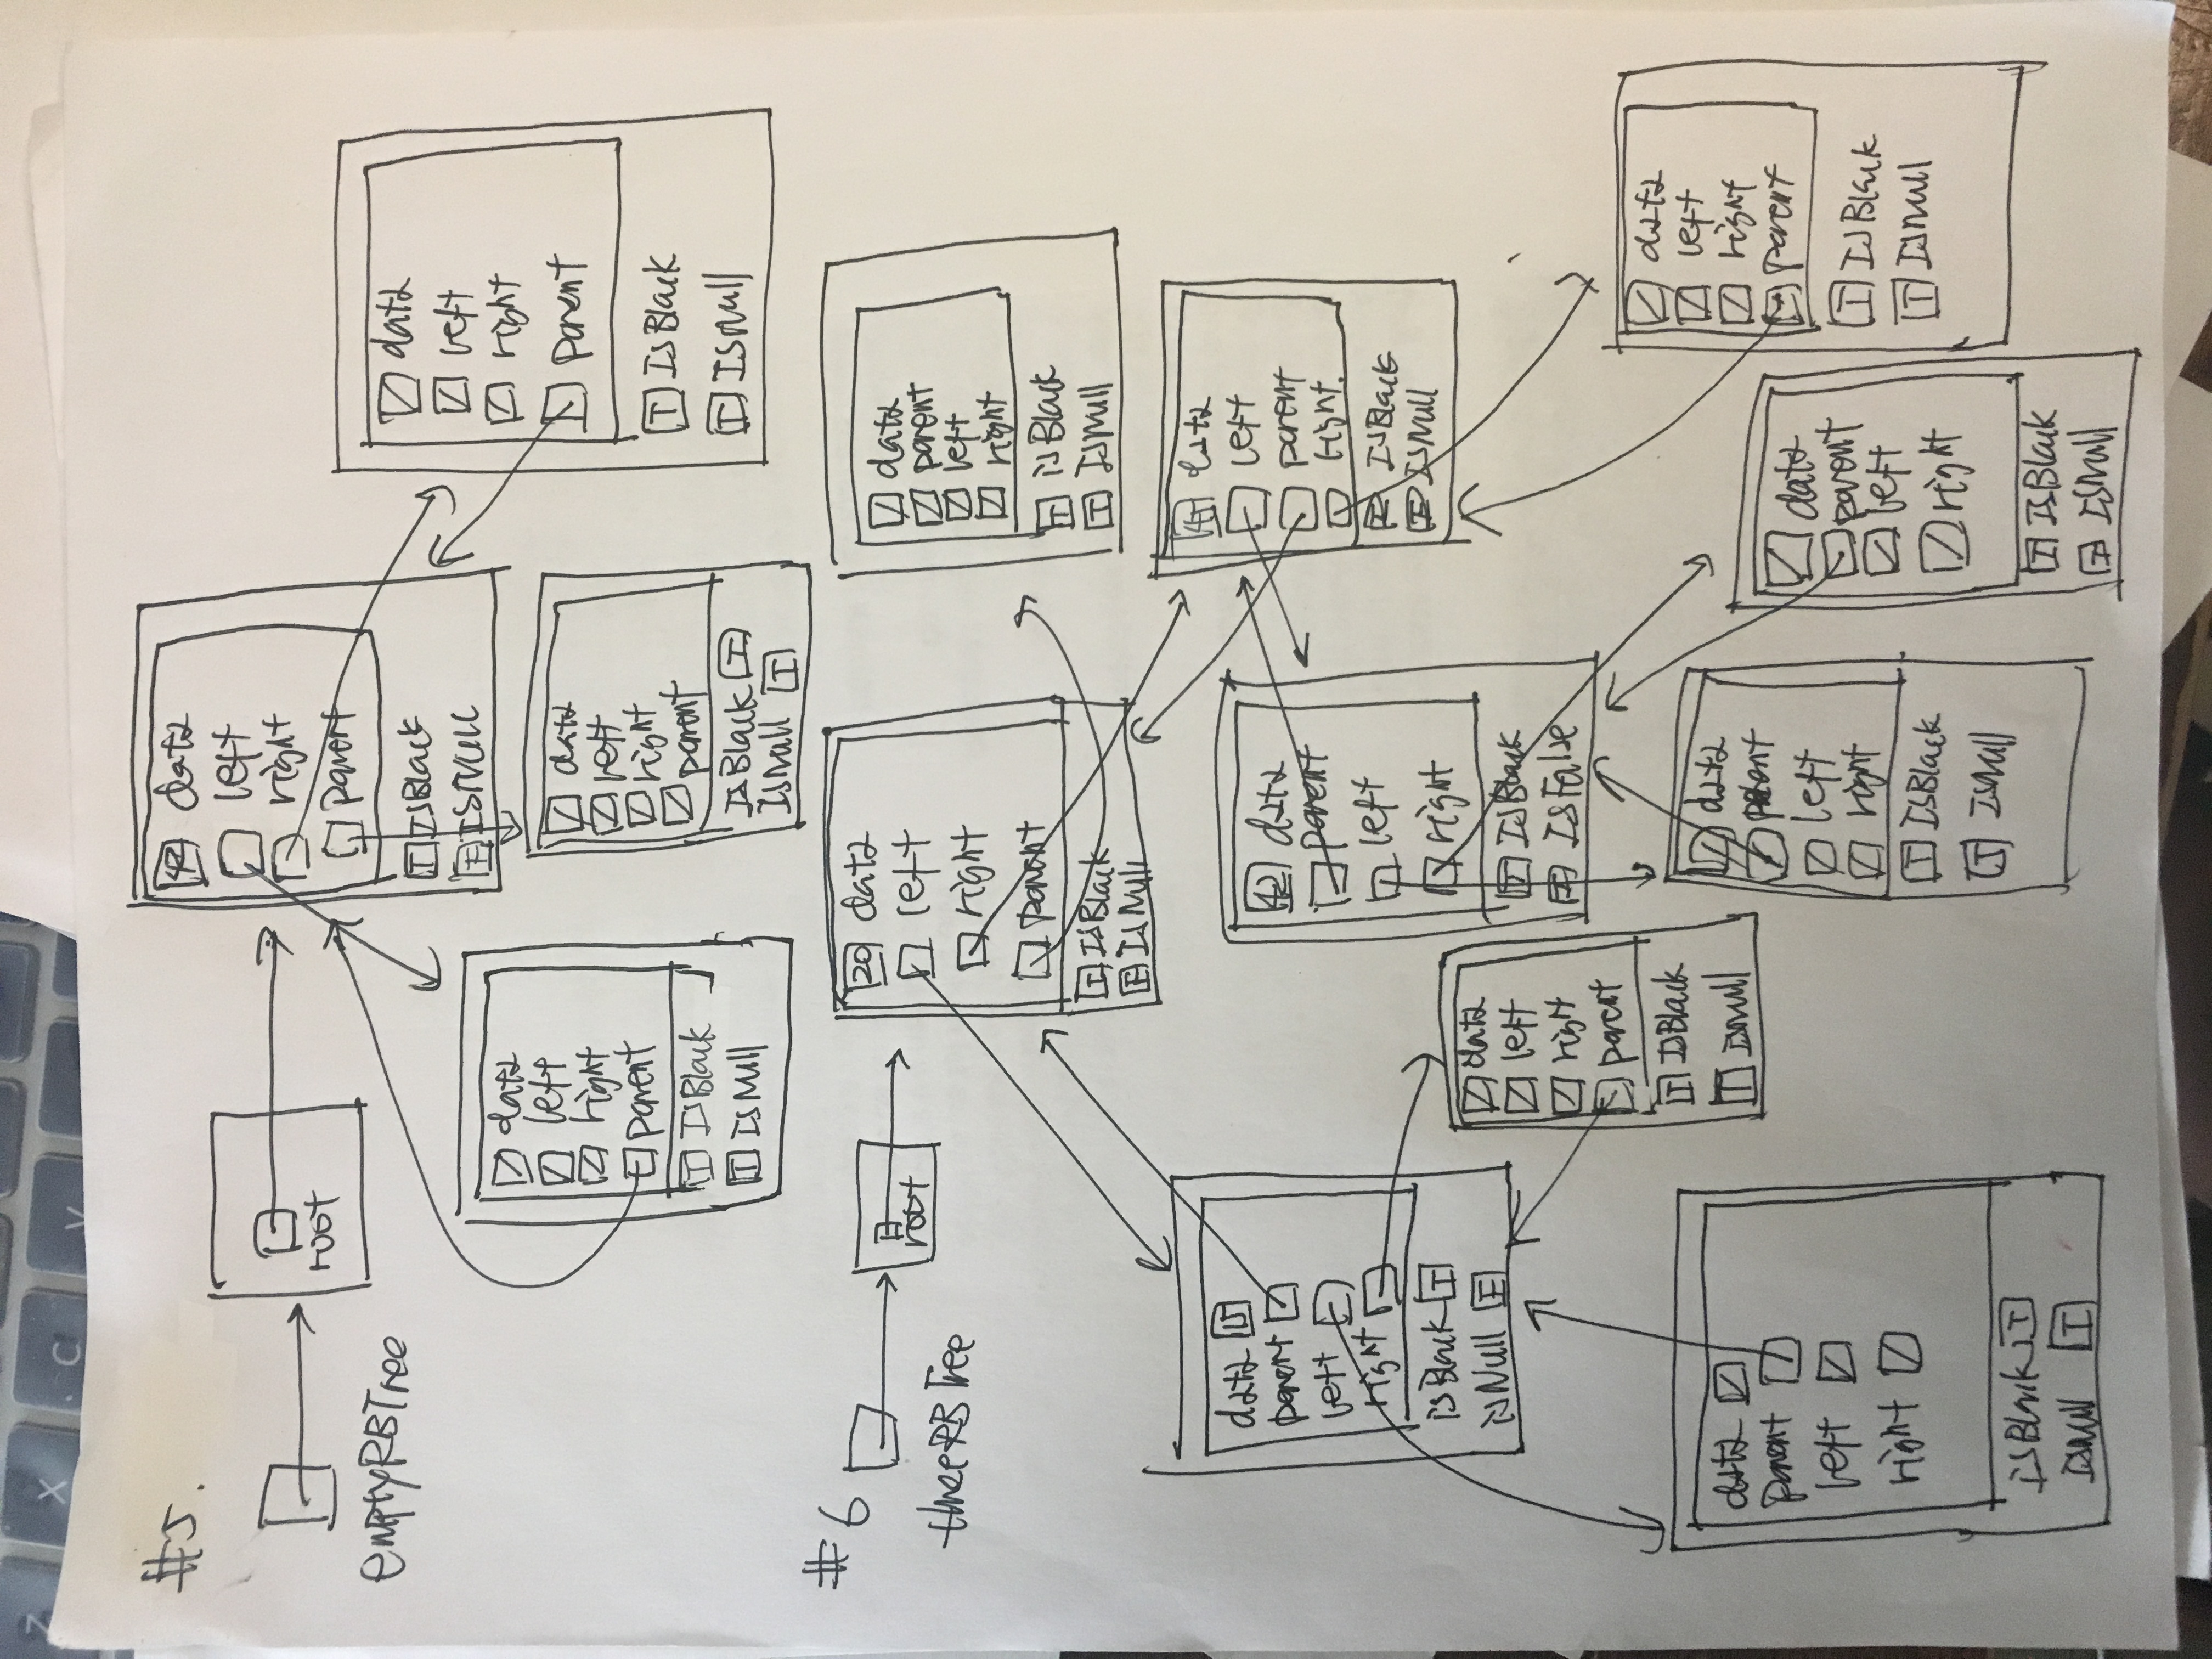 Z X C V
#5.
emptyRBTree
root
42 data
left
right
parent
T IsBlack
F IsNull
data
left
right
parent
T IsBlack
T IsNull
data
left
right
parent
IsBlack T
IsNull T
data
left
right
parent
T IsBlack
T IsNull
#6
threeRBTree
root
20 data
left
right
parent
T IsBlack
F IsNull
data
parent
left
right
T isBlack
T IsNull
data 15
parent
left
right
isBlack T
isNull F
42 data
parent
left
right
IsBlack
IsFalse
data
left
parent
right
IsBlack
IsNull
data
left
right
parent
T IsBlack
T IsNull
data
parent
left
right
isBlack T
IsNull T
data
parent
left
right
T IsBlack
T IsNull
data
parent
left
right
T IsBlack
T IsNull
data
left
right
parent
T IsBlack
T IsNull